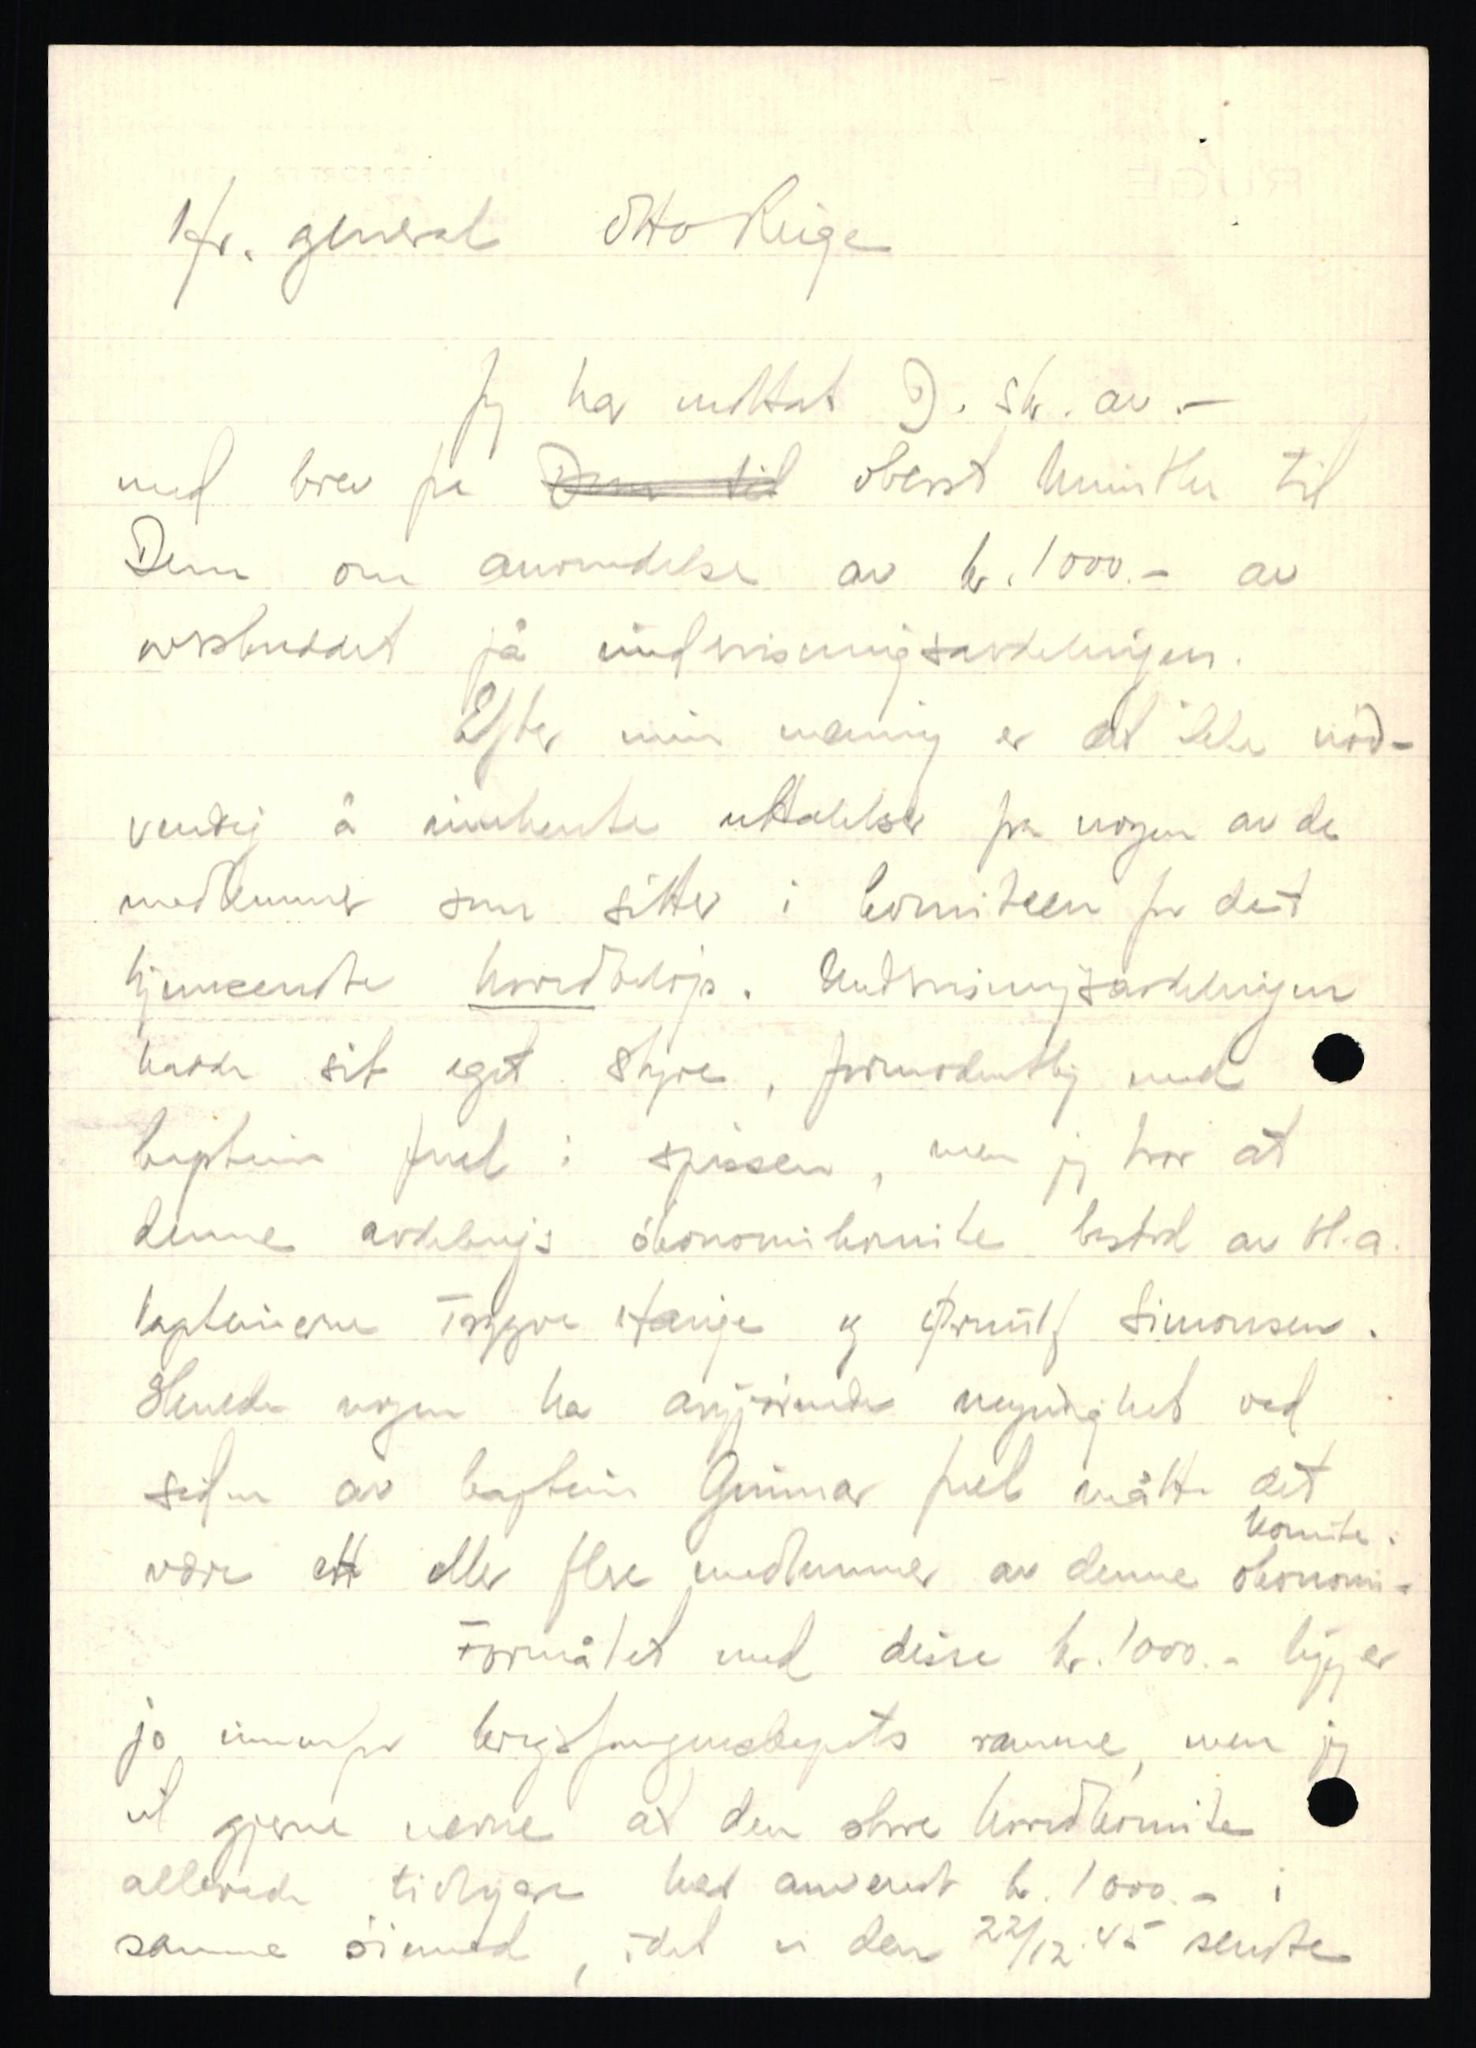 Hr. general Otto Ruge
Jeg har mottat D. skr. av. –
med brev fra Dem til oberst til
Dem om anvendelse av kr. 1000.- av
overskuddet på undervisningsavdelingen.
Efter min mening er det ikke nöd-
vendig å innhente uttalelser fra nogen av de
medlemmer som sitter i komiteen for det
hjemsendte hovedbelöp. Undervisningsavdelingen
hadde sit eget styre, formodentlig med
kaptein Juel i spissen, men jeg tror at
denne avdelings ökonomikomite bestod av bl.a.
kapteinerne Trygve Hauge og Ørnulf Simonsen.
Skulde nogen ha avgjörende myndighet ved
siden av kaptein Gunnar Juel måtte det
være ett eller flere medlemmer av denne ökonomi-
komite.
Formålet med disse kr. 1000.- ligger
jo innenfor krigsfangenskapets ramme, men jeg
vil gjerne nevne at den store hovedkomite
allerede tidligere had anvendt kr. 1000.- i
samme öiemed, idet vi den 22/12.45 sendte